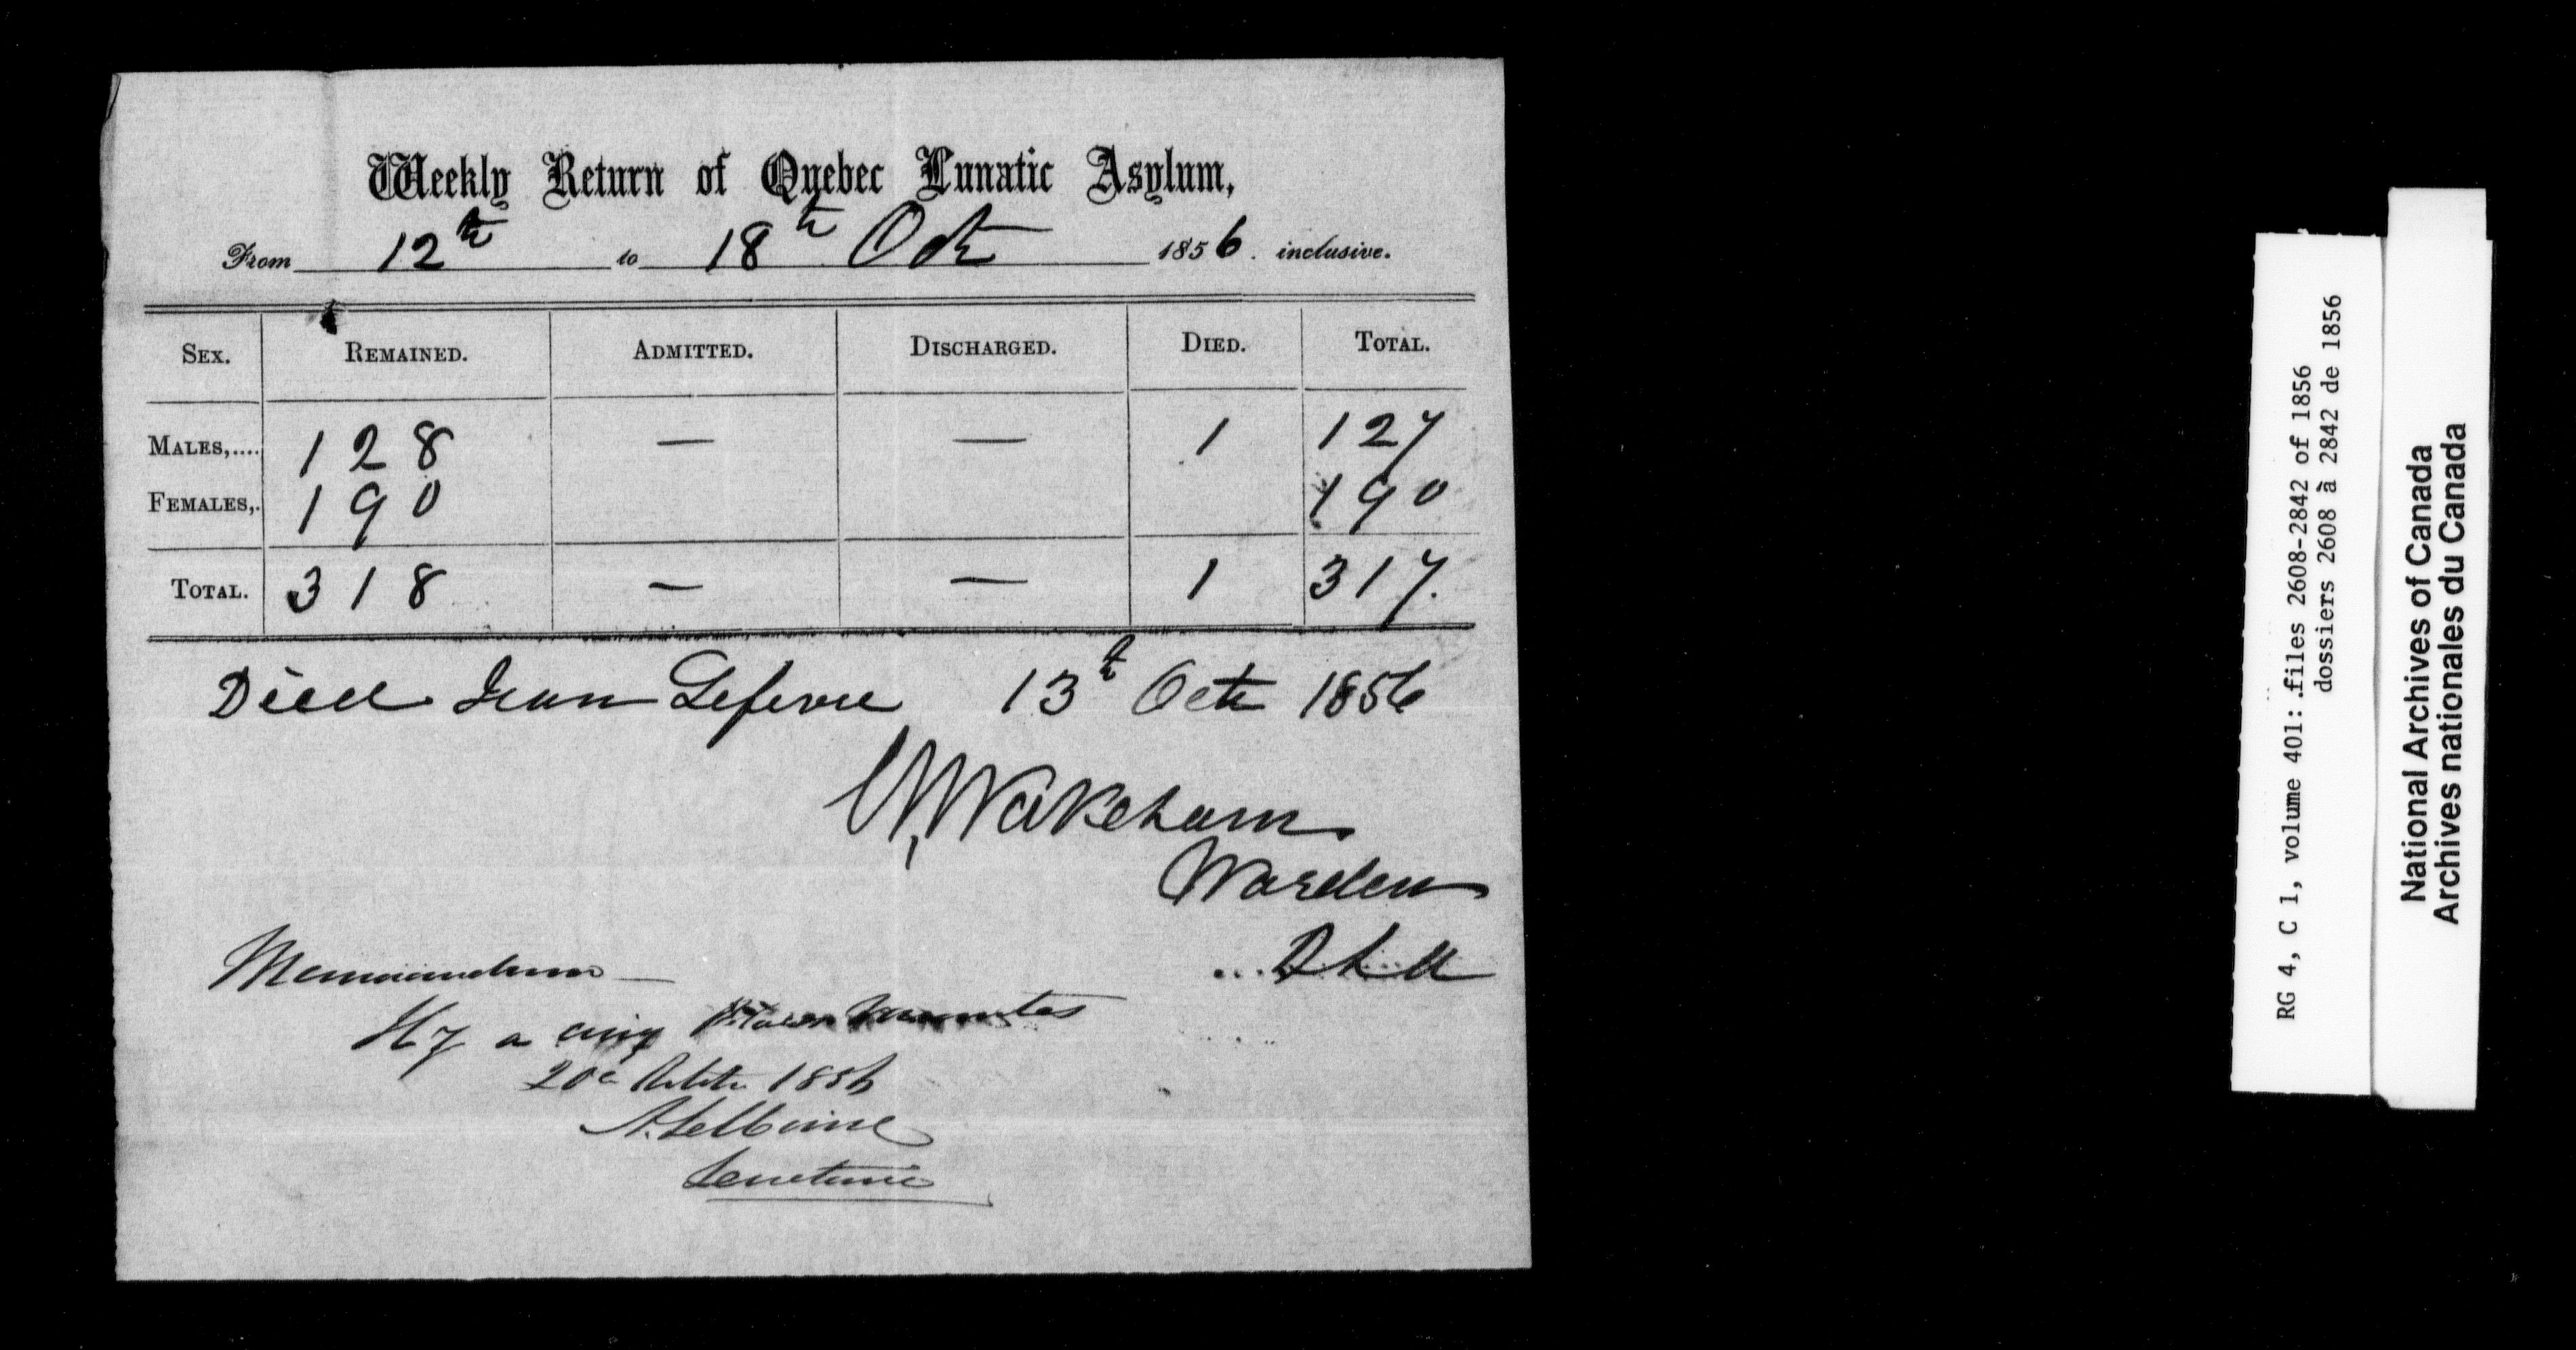 Weekly Return of Quebec Lunatic Asylum,
From 12th to 18th Octr 1856. inclusive.
SEX. REMAINED. ADMITTED. DISCHARGED. DIED. TOTAL.
MALES,.... 128 — — 1 127
FEMALES,. 190 190
TOTAL. 318 — — 1 317.
Died Jean Lefevre 13th Octr 1856
Wakeham
Warden
Memorandum —
Il y a cinq
20e 1856
Secretaire
RG 4, C 1, volume 401: files 2608-2842 of 1856
dossiers 2608 à 2842 de 1856
National Archives of Canada
Archives nationales du Canada